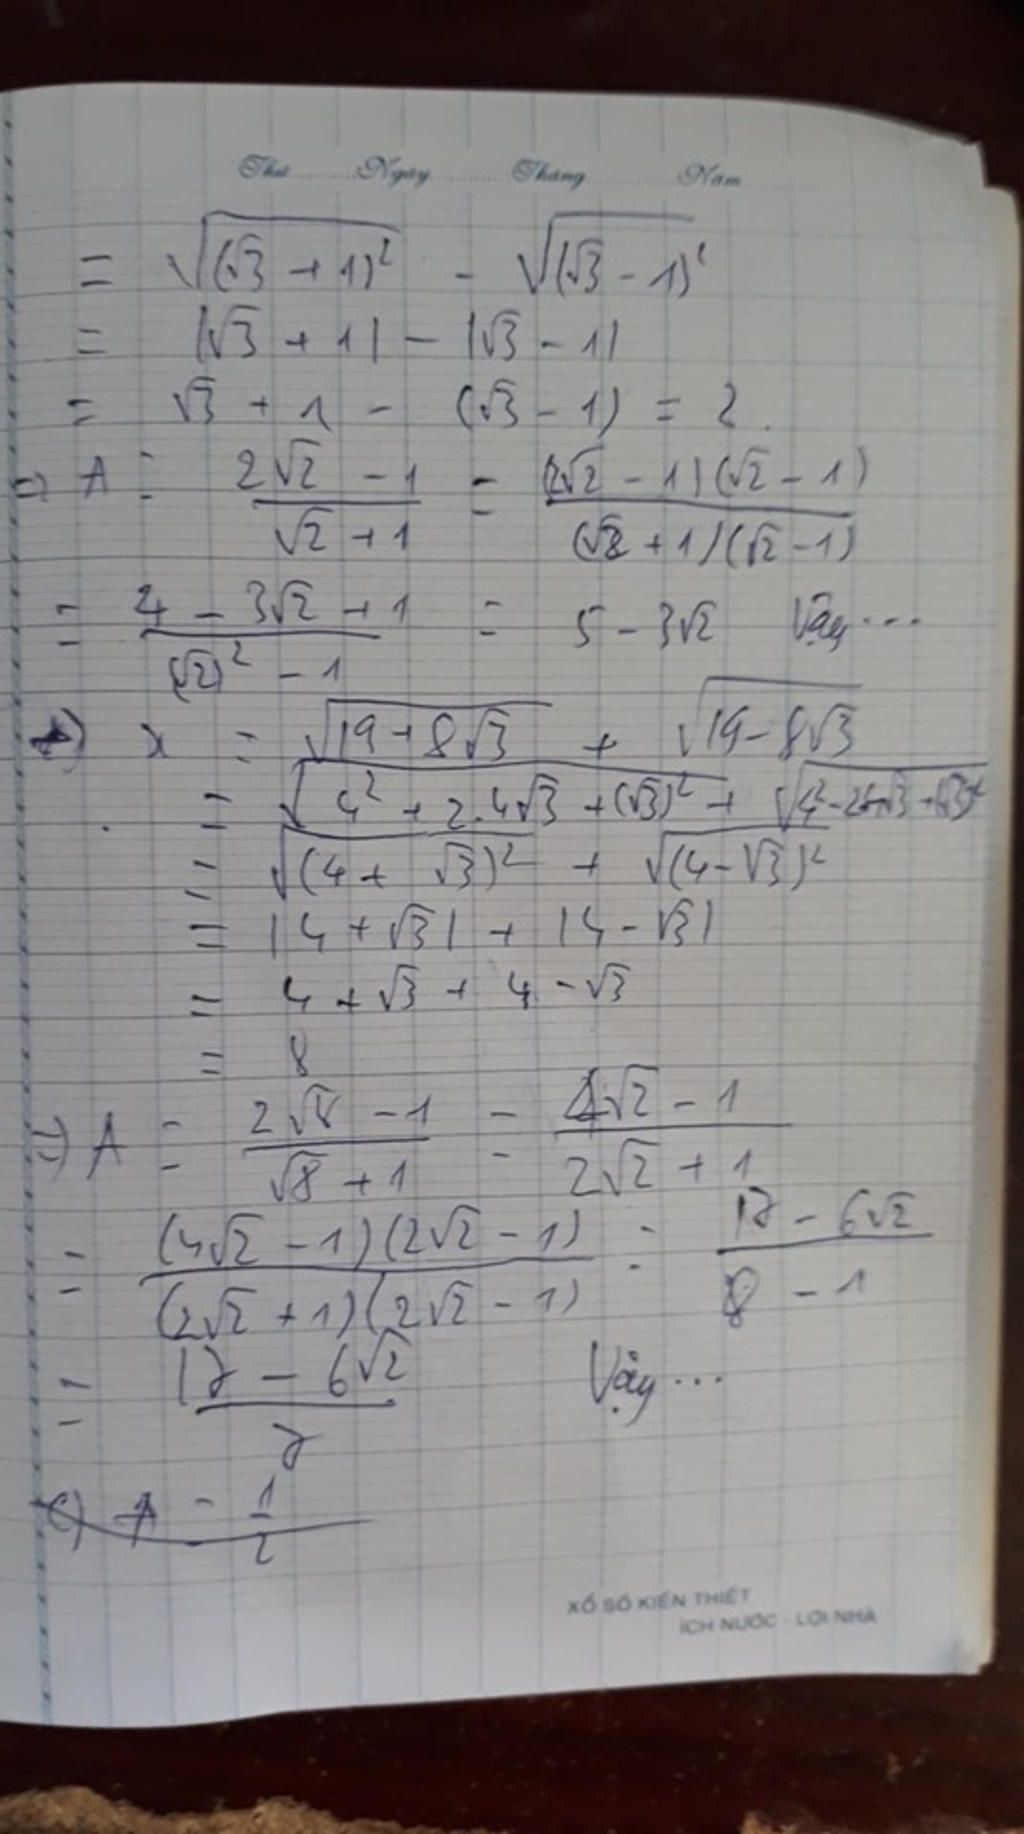 Thứ Ngày Tháng Năm
= √(√3 + 1)² - √(√3 - 1)²
= |√3 + 1| - |√3 - 1|
= √3 + 1 - (√3 - 1) = 2.
=> A = (2√2 - 1)/(√2 + 1) = (2√2 - 1)(√2 - 1)/(√2 + 1)(√2 - 1)
= (4 - 3√2 + 1)/((√2)² - 1) = 5 - 3√2 Vậy...
+) x = √(19 + 8√3) + √(19 - 8√3)
= √(4² + 2.4√3 + (√3)²) + √(4² - 2.4√3 + (√3)²)
= √(4 + √3)² + √(4 - √3)²
= |4 + √3| + |4 - √3|
= 4 + √3 + 4 - √3
= 8
=> A = (2√8 - 1)/(√8 + 1) = (4√2 - 1)/(2√2 + 1)
= (4√2 - 1)(2√2 - 1)/(2√2 + 1)(2√2 - 1) = (17 - 6√2)/(8 - 1)
= (17 - 6√2)/7 Vậy...
c) A = 1/2
XỔ SỐ KIẾN THIẾT
ÍCH NƯỚC - LỢI NHÀ